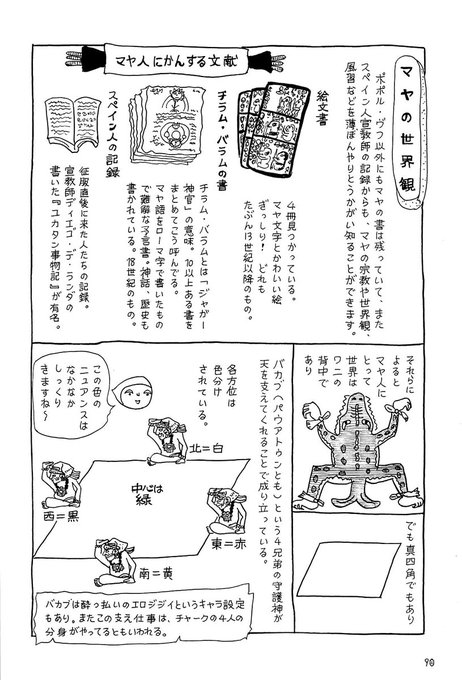 マヤの世界観
ポポル・ヴフ以外にもマヤの書は残っていて、また
スペイン人宣教師の記録からも、マヤの宗教や世界観、
風習などを薄ぼんやりとうかがい知ることができます。
マヤ人にかんする文献
絵文書
4冊見つかっている。
マヤ文字とかわいい絵
ぎっしり! どれも
たぶん13世紀以降のもの。
チラム・バラムの書
チラム・バラムとは「ジャガー
神官」の意味。10以上ある書を
まとめてこう呼んでる。
マヤ語をローマ字で書いたもの
で難解な予言書。神話、歴史も
書かれている。18世紀のもの。
スペイン人の記録
征服直後に来た人たちの記録。
宣教師ディエゴ・デ・ランダの
書いた『ユカタン事物記』が有名。
それらに
よると
マヤ人に
とって
世界は
ワニの
背中で
あり
でも真四角でもあり
バカブ(パウアトゥンとも)という4兄弟の守護神が
天を支えてくれることで成り立っている。
各方位は
色分け
されている。
この色の
ニュアンスは
なかなか
しっくり
きますね〜
北=白
中心は
緑
西=黒
東=赤
南=黄
バカブは酔っ払いのエロジジイというキャラ設定
もあり。またこの支え仕事は、チャークの4人の
分身がやってるともいわれる。
90